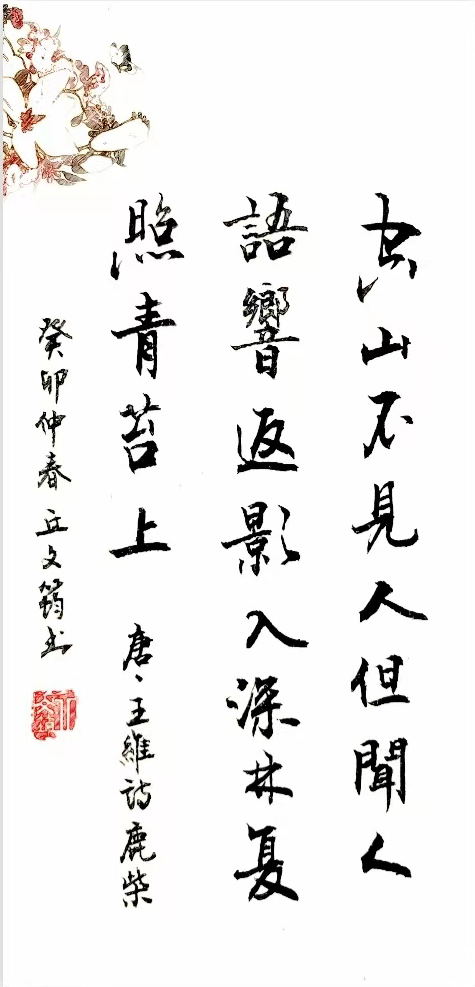 空山不見人但聞人
語響返影入深林复
照青苔上
唐、王維詩鹿柴
癸卯仲春丘文筠书